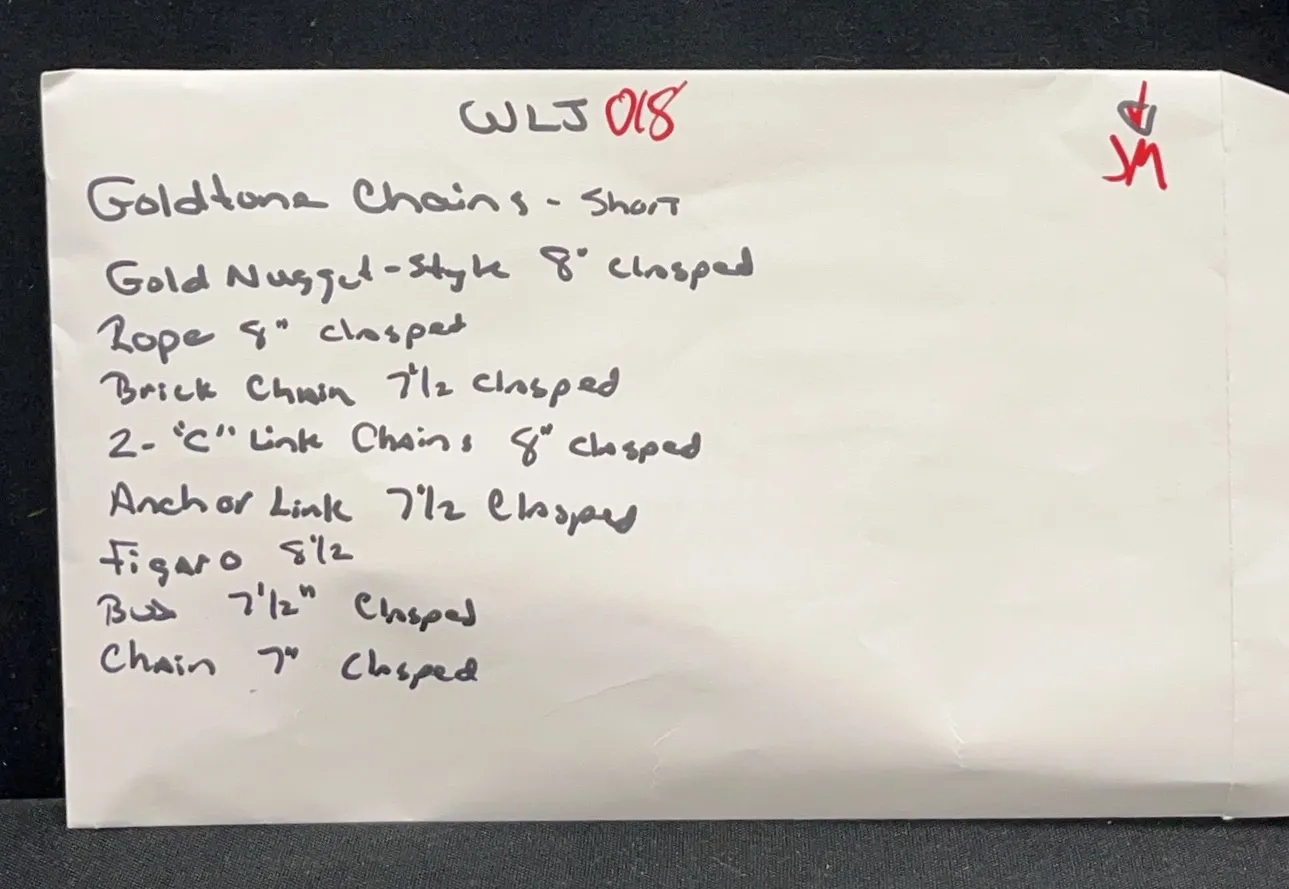 WLJ 018
JM
Goldtone Chains - Short
Gold Nugget-Style 8" clasped
Rope 8" clasped
Brick Chain 7 1/2 clasped
2- "C" Link Chains 8" clasped
Anchor Link 7 1/2 Clasped
Figaro 8 1/2
7 1/2" Clasped
Chain 7" Clasped